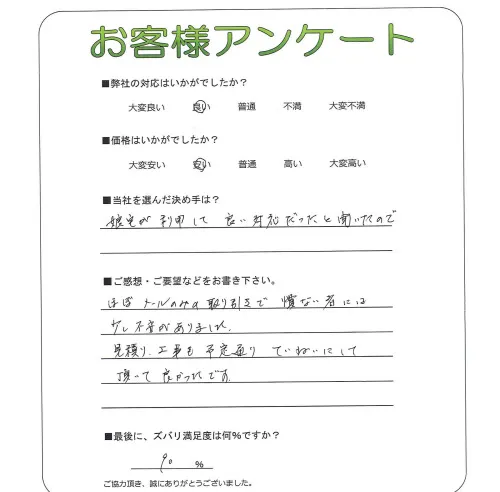 お客様アンケート
■弊社の対応はいかがでしたか？
大変良い 良い 普通 不満 大変不満
■価格はいかがでしたか？
大変安い 安い 普通 高い 大変高い
■当社を選んだ決め手は？
娘宅が利用して良い対応だったと聞いたので
■ご感想・ご要望などをお書き下さい。
ほぼメールのみの取り引きで慣ない者には
少し不安がありました。
見積り、工事も予定通りていねいにして
頂いて良かったです。
■最後に、ズバリ満足度は何％ですか？
90 %
ご協力頂き、誠にありがとうございました。